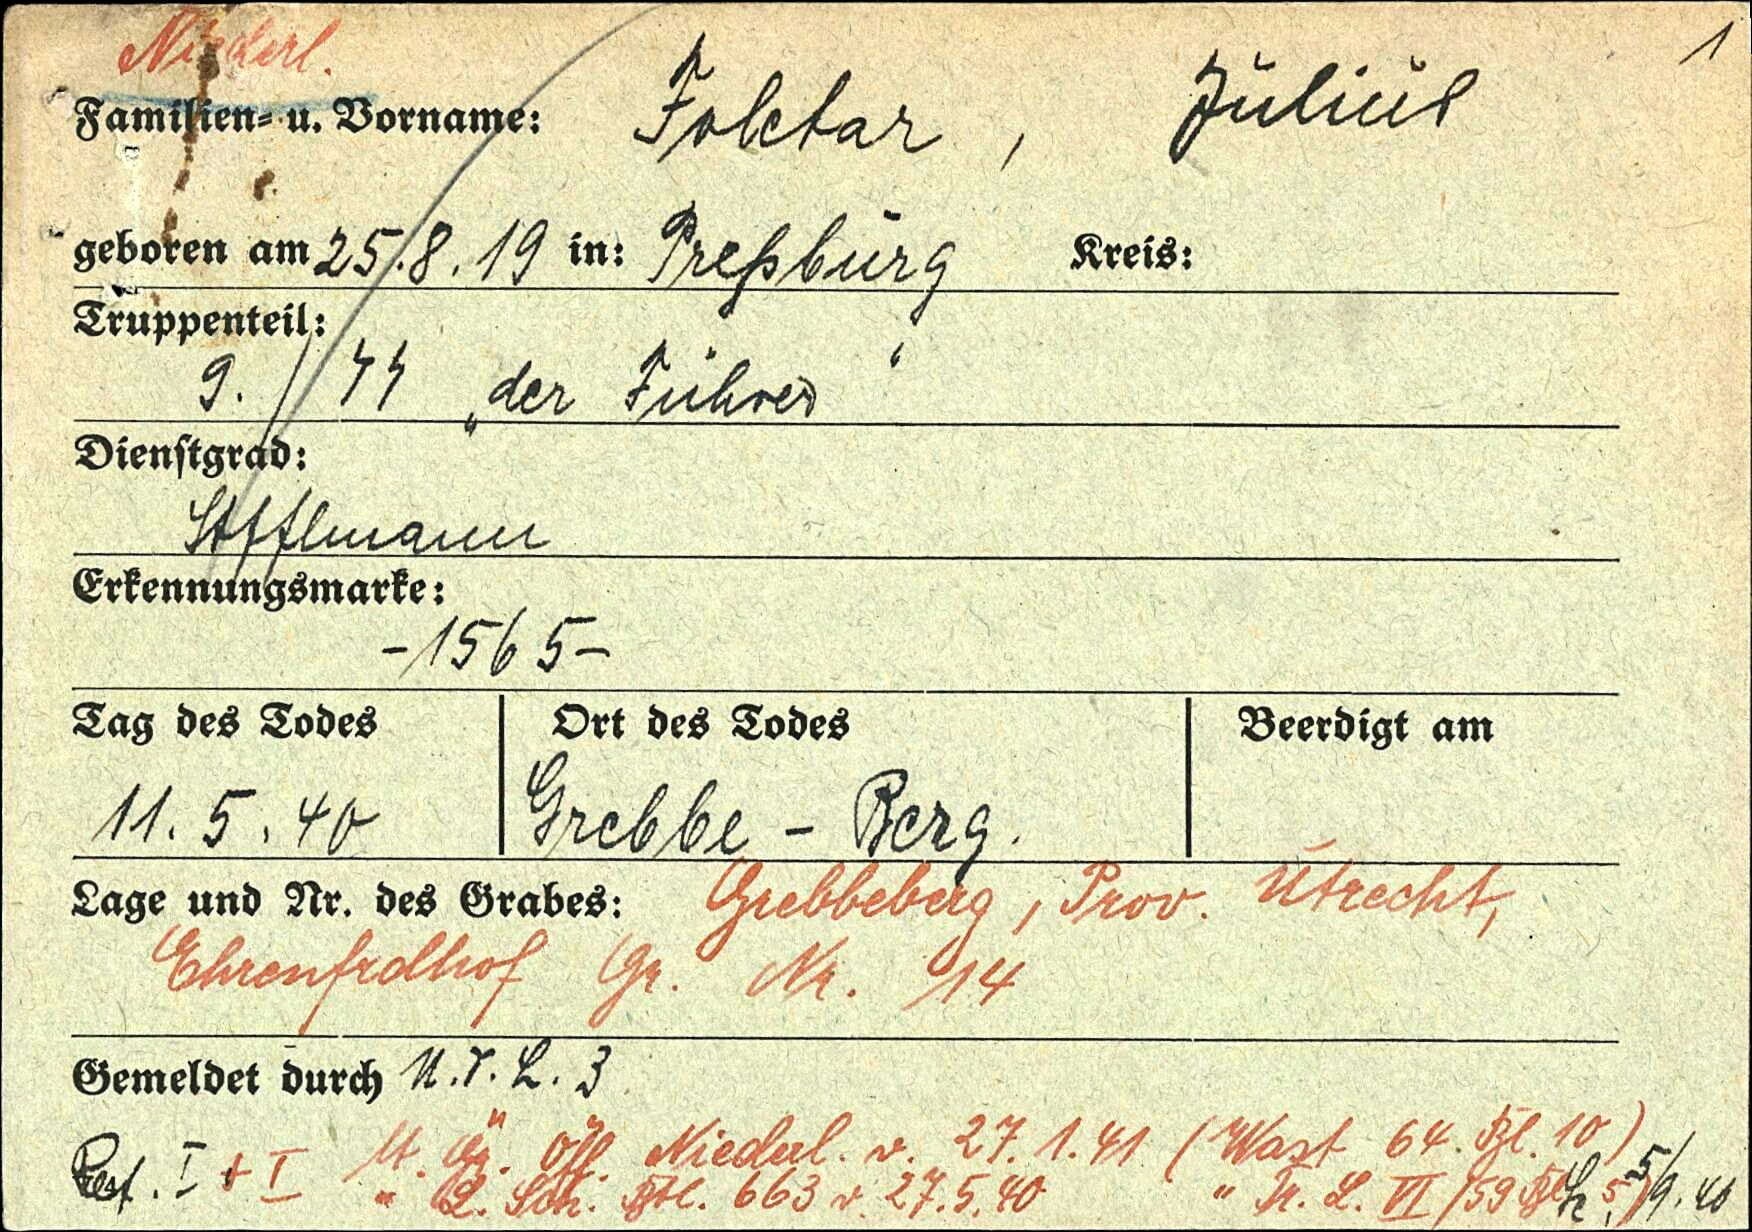 Niederl.
1
Familien- u. Vorname: Folctar, Julius
geboren am 25.8.19 in: Preßburg Kreis:
Truppenteil:
9./ ϟϟ „der Führer“
Dienstgrad:
Erkennungsmarke:
-1565-
Tag des Todes Ort des Todes Beerdigt am
11.5.40 Grebbe - Berg.
Lage und Nr. des Grabes: Grebbeberg, Prov. Utrecht,
Ehrenfrdhof Gr. Nr. 14
Gemeldet durch U.V.L. 3
I + I lt. Gr. Off. Niederl. v. 27.1.41 (Wast 64. Bl. 10)
" 663 v. 27.5.40 " Tr. L. VI/59 Bl. 5) 5/9.40